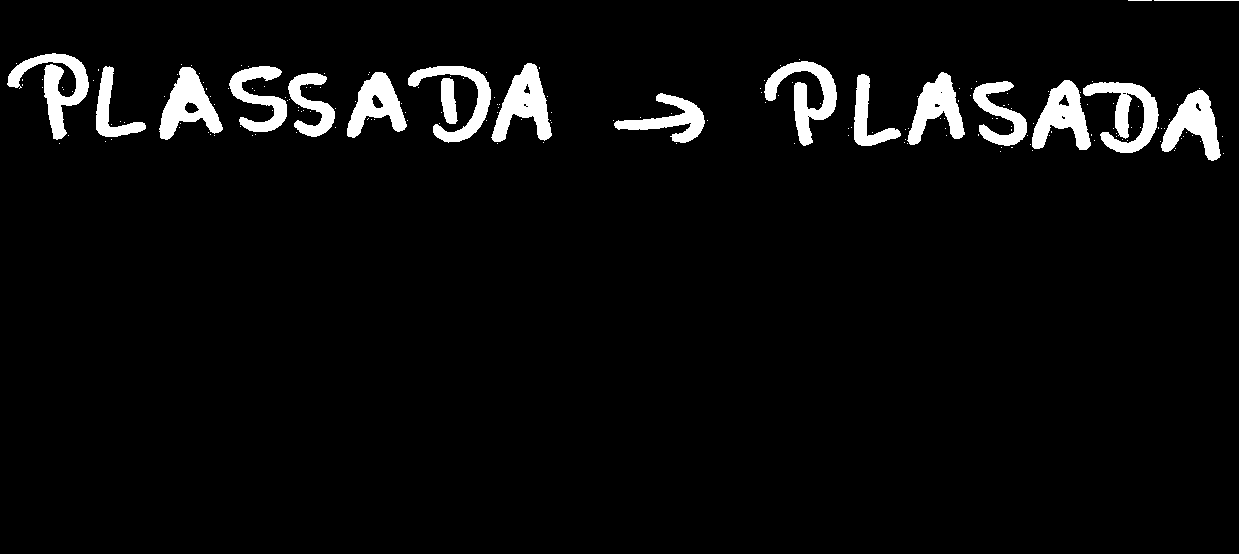 PLASSADA → PLASADA